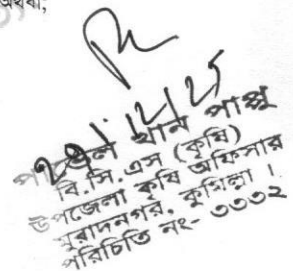 অথবা;
খান পাপ্পু
বি.সি.এস (কৃষি)
উপজেলা কৃষি অফিসার
মুরাদনগর, কুমিল্লা।
পরিচিতি নং- ৩৩৩২